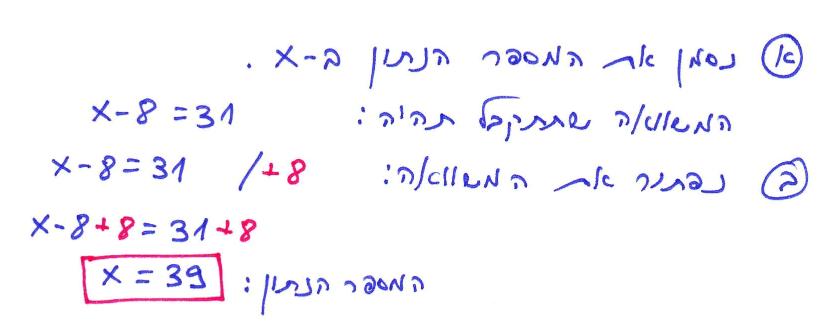 א) נסמן את המספר הנתון ב-x .
המשוואה שתתקבל תהיה: x-8=31
ב) נפתור את המשוואה: x-8=31 /+8
x-8+8=31+8
המספר הנתון: x=39